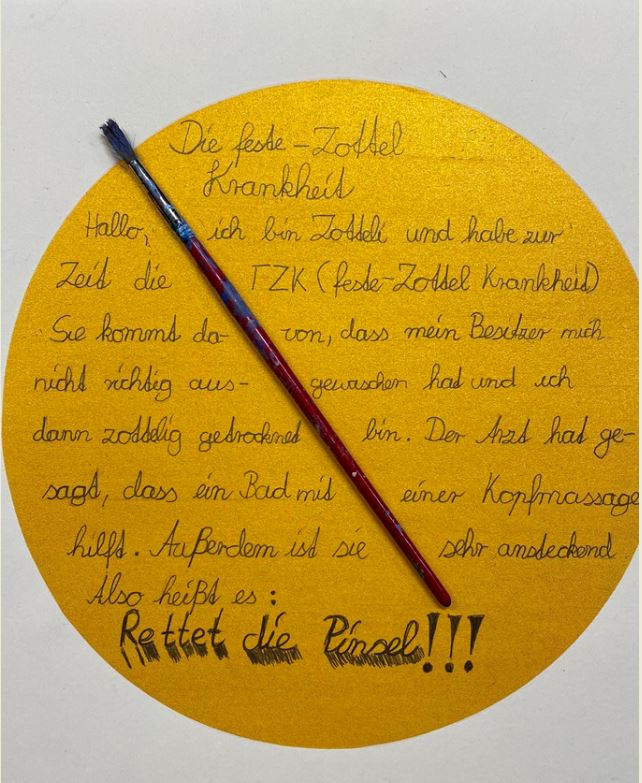 Die feste-Zottel
Krankheit
Hallo, ich bin Zotteli und habe zur
Zeit die FZK (feste-Zottel Krankheit)
Sie kommt da- von, dass mein Besitzer mich
nicht richtig aus- gewaschen hat und ich
dann zottelig getrocknet bin. Der Arzt hat ge-
sagt, dass ein Bad mit einer Kopfmassage
hilft. Außerdem ist sie sehr ansteckend.
Also heißt es:
Rettet die Pinsel!!!